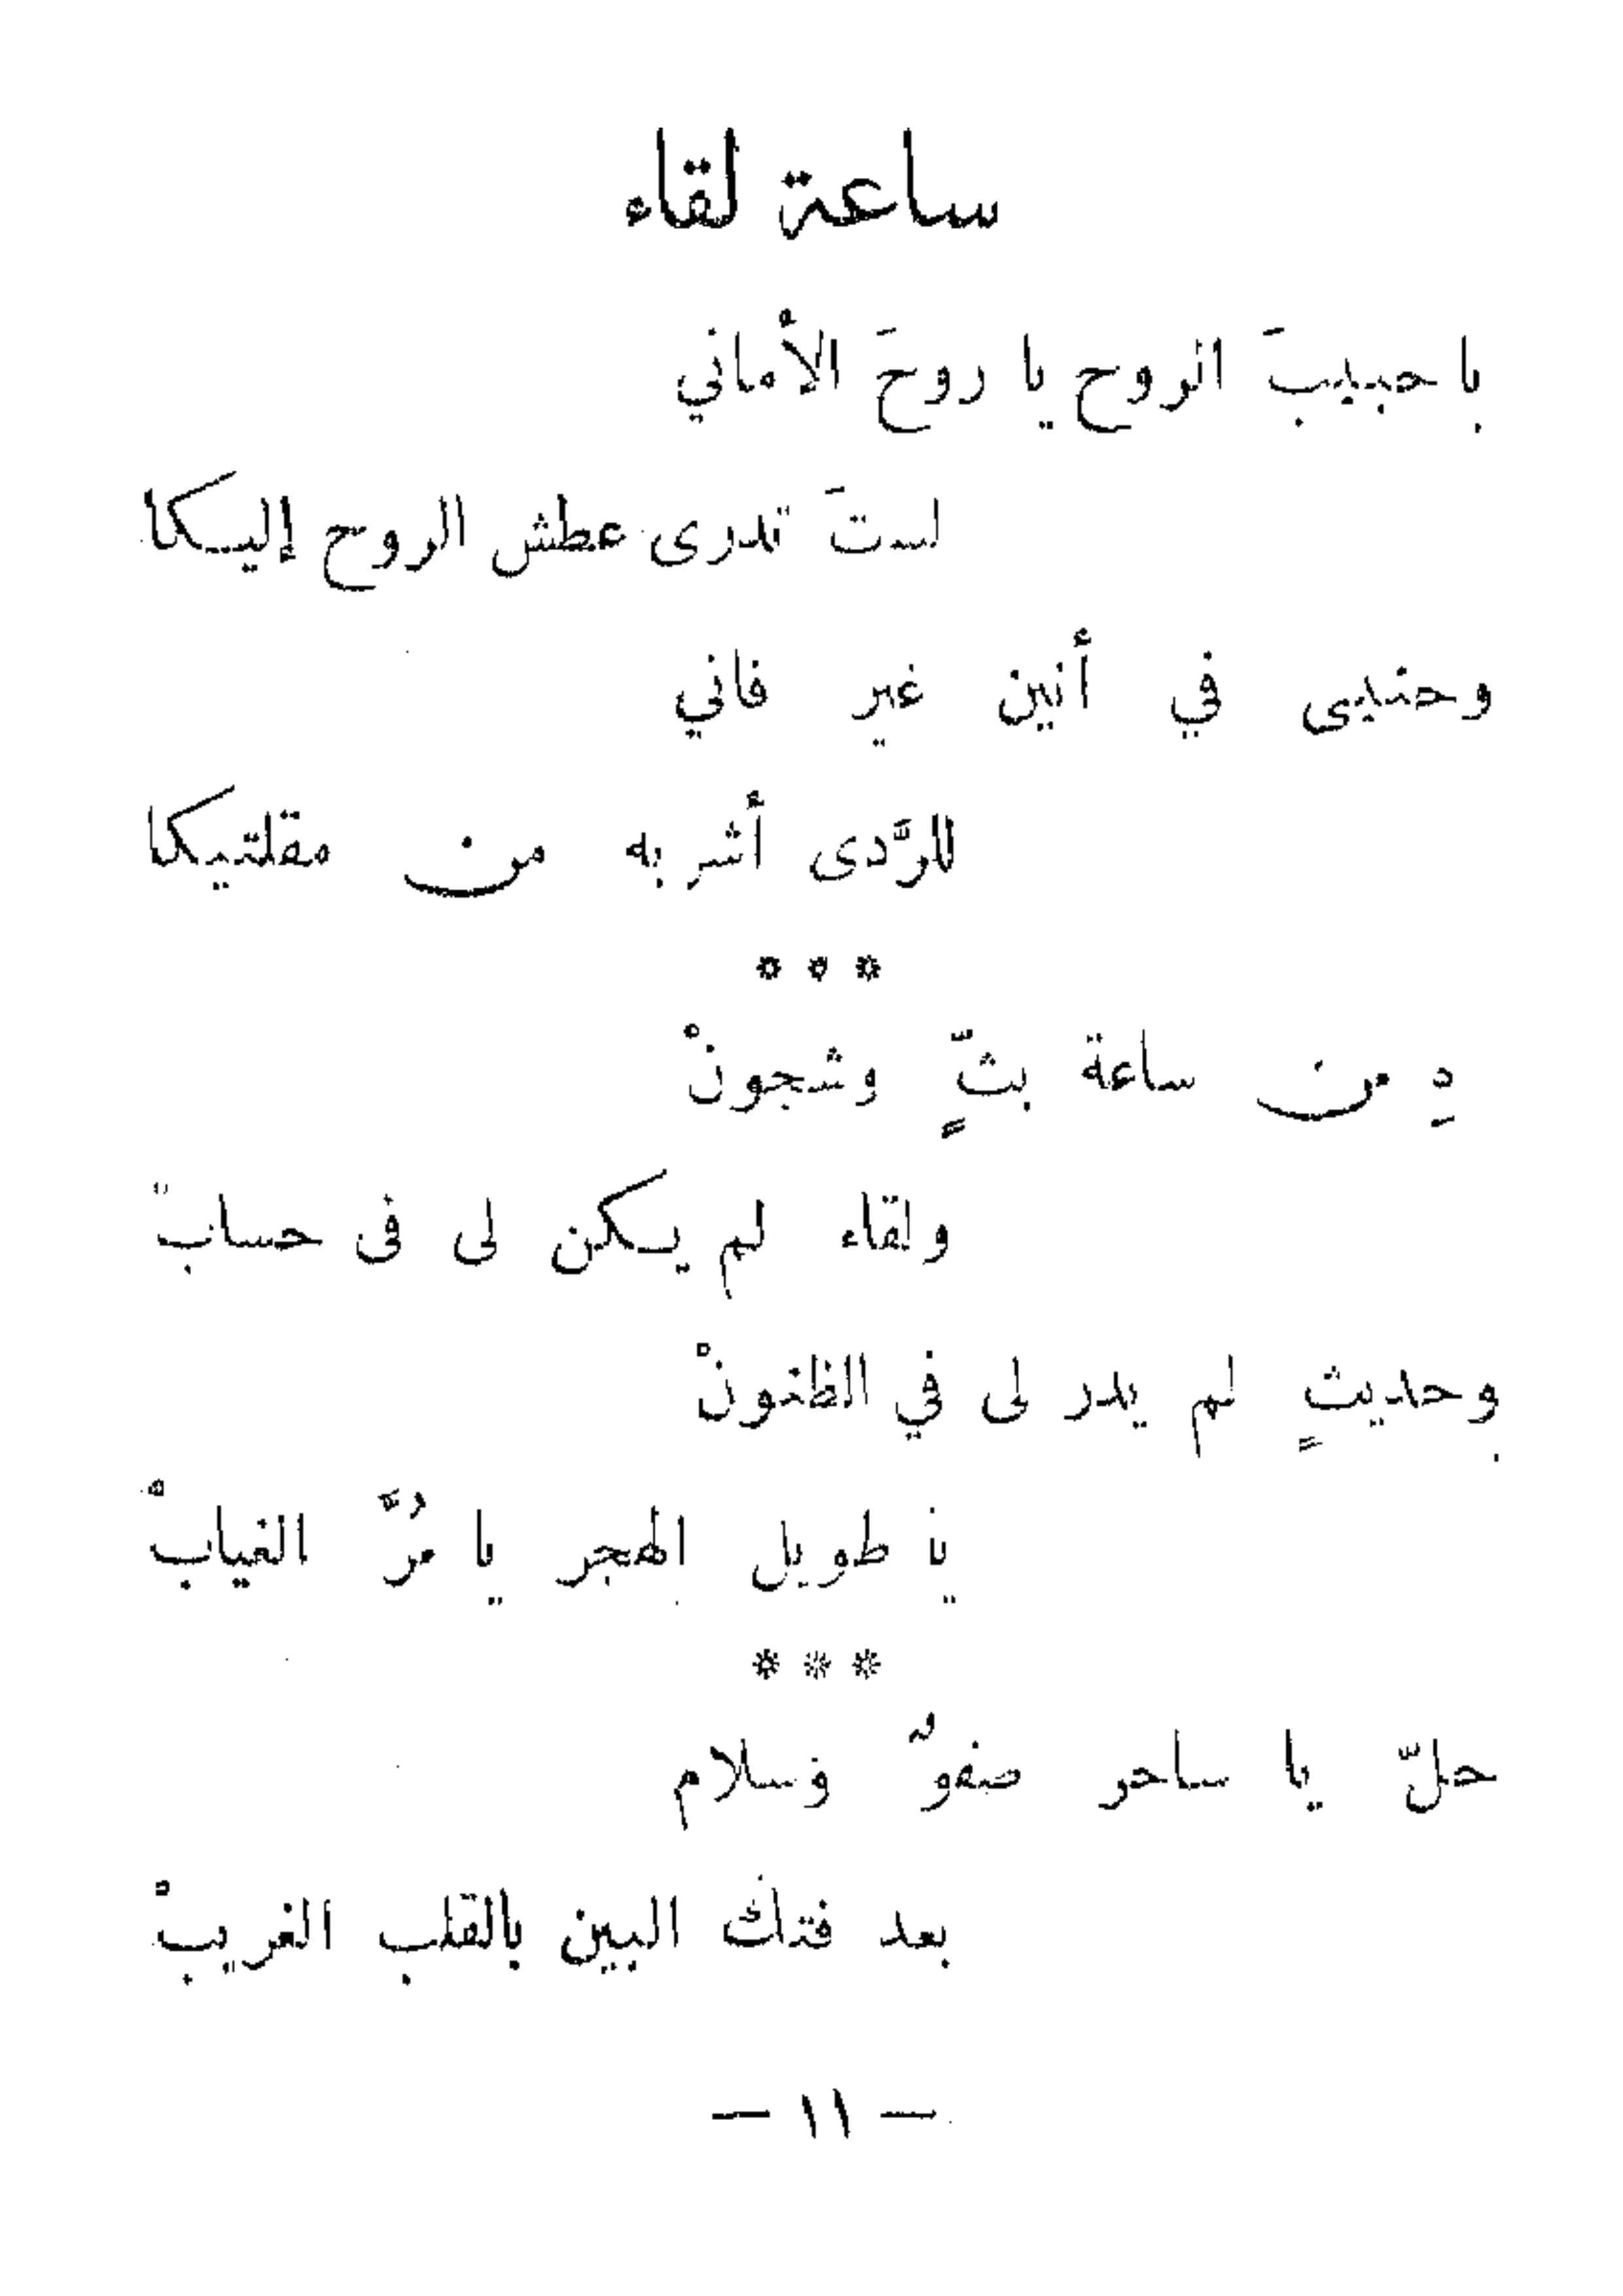 ساعة لقاء
يا حبيبَ الروح يا روحَ الأماني
لستَ تدرى عطش الروح إليكا
وحنينى في أنين غير فاني
للرَّدى أشربه من مقلتيكا
* * *
من ساعة بثٍّ وشجونْ
ولقاء لم يكن لى فى حسابْ
وحديثٍ لم يدر لى في الظنونْ
يا طويل الهجر يا مُرَّ الغيابْ
* * *
حلّ يا ساحر صفوٌ وسلام
بعد فتك البين بالقلب الغريبْ
— ١١ —